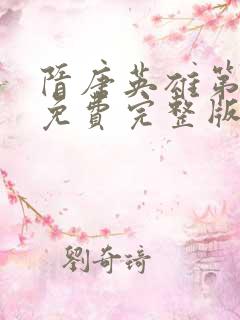 隋唐英雄第
免费完整版
劉奇琦